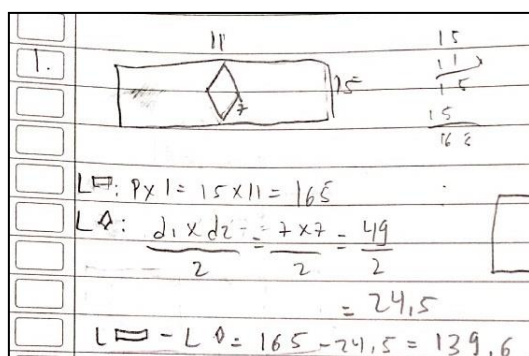 11
1.
15
7
15
11 ×
15
15
165
L▭: P x l = 15 x 11 = 165
L◊: d1 x d2 / 2 = 7 x 7 / 2 = 49 / 2
= 24,5
L▭ - L◊ = 165 - 24,5 = 139,6